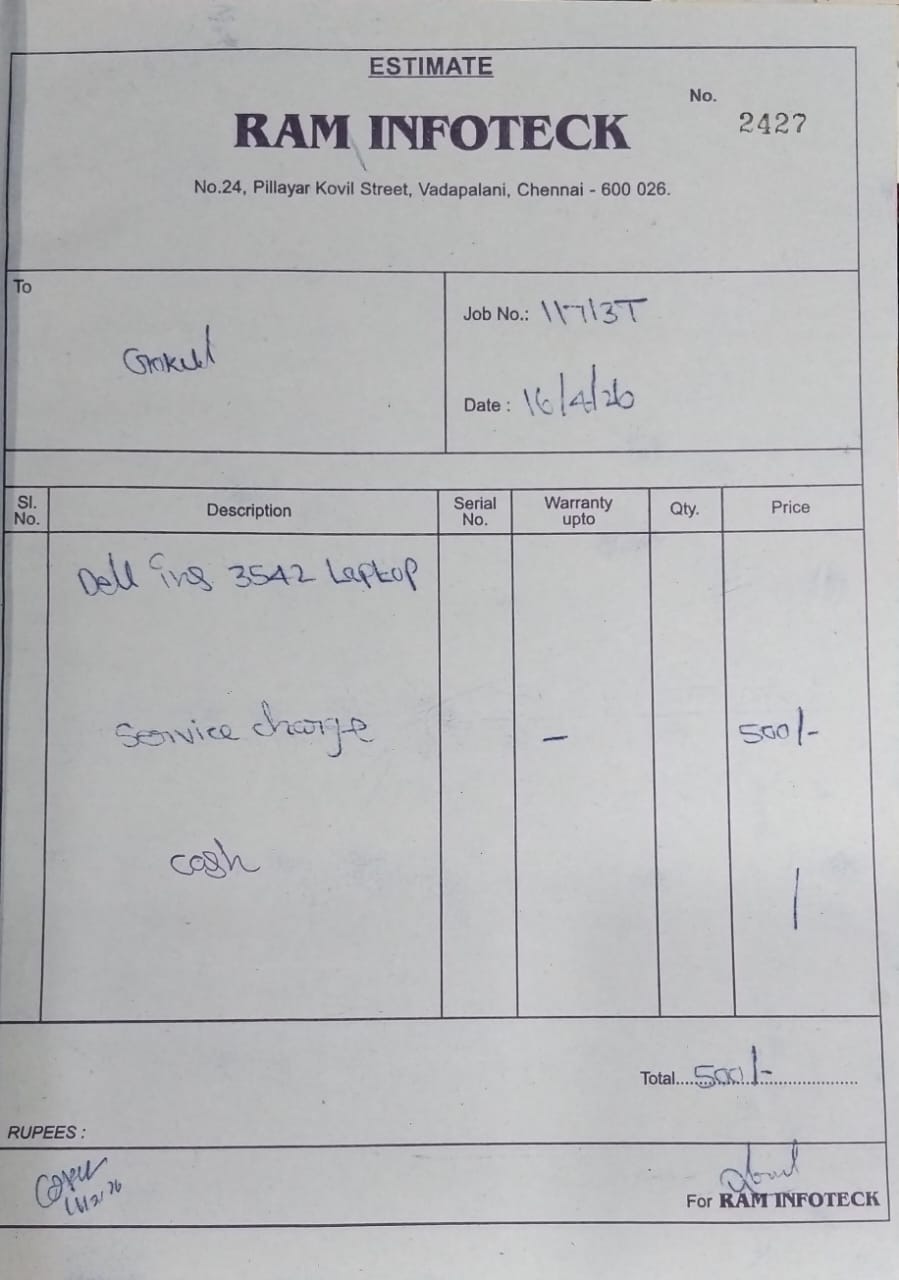 ESTIMATE
No.
2427
RAM INFOTECK
No.24, Pillayar Kovil Street, Vadapalani, Chennai - 600 026.
To
Gokul
Job No.: 11713T
Date : 16/4/26
Sl. No. Description Serial No. Warranty upto Qty. Price
Dell ins 3542 Laptop
Service charge - 500/-
cash
Total 500/-
RUPEES :
For RAM INFOTECK